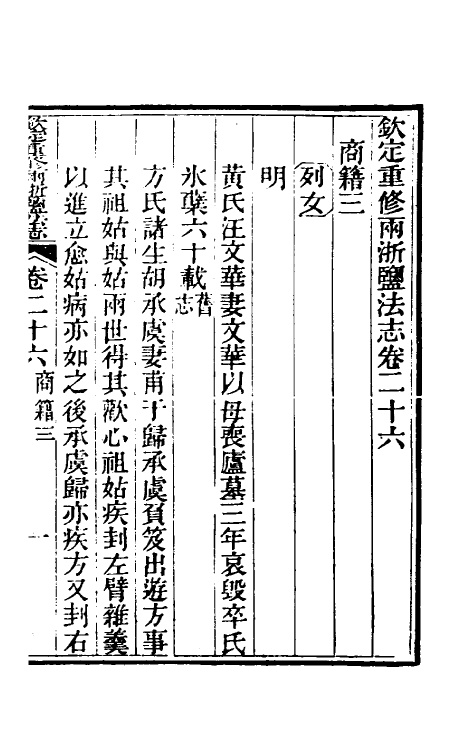 欽定重修兩浙鹽法志卷二十六
商籍三
列女
明
黃氏汪文華妻文華以母喪廬墓三年哀毀卒氏
氷蘗六十載舊志
方氏諸生胡承虞妻甫于歸承虞負笈出遊方事
其祖姑與姑兩世得其歡心祖姑疾刲左臂雜羹
以進立愈姑病亦如之後承虞歸亦疾方又刲右
欽定重修兩浙鹽法志
卷二十六
商籍三
一